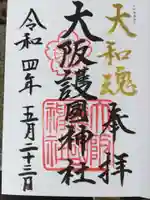 大和魂
奉拝
大阪護國神社
令和四年 五月二十三日